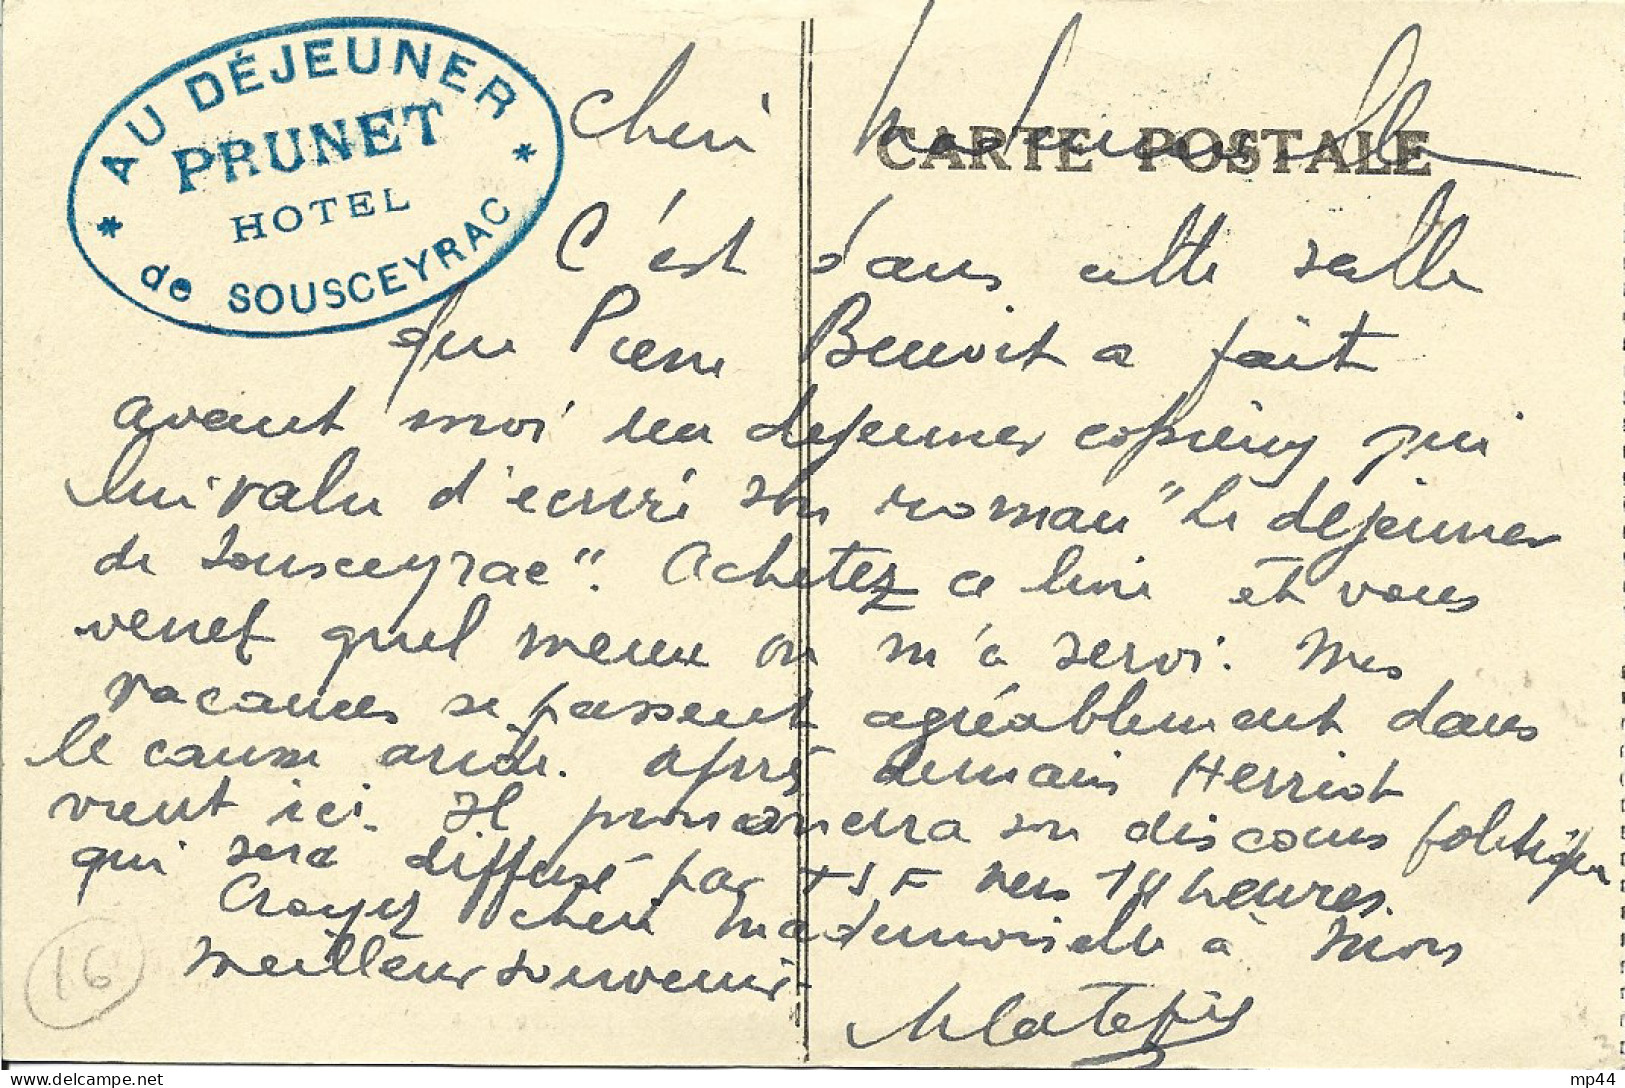 AU DÉJEUNER
PRUNET
HOTEL
de SOUSCEYRAC
CARTE POSTALE
Cheri Mademoiselle
C'est dans cette salle
que Pierre Benoit a fait
avant moi un dejeuner copieux qui
lui valu d'ecrire son roman "Le dejeuner
de Sousceyrac". Achetez ce livre et vous
verrez quel menu on m'a servi. Mes
vacances se passent agréablement dans
le causse aride. Après demain Herriot
vient ici. Il prononcera son discours politique
qui sera diffusé par TSF vers 18 heures.
Croyez cheri Mademoiselle à mon
meilleur souvenir
16
mp44